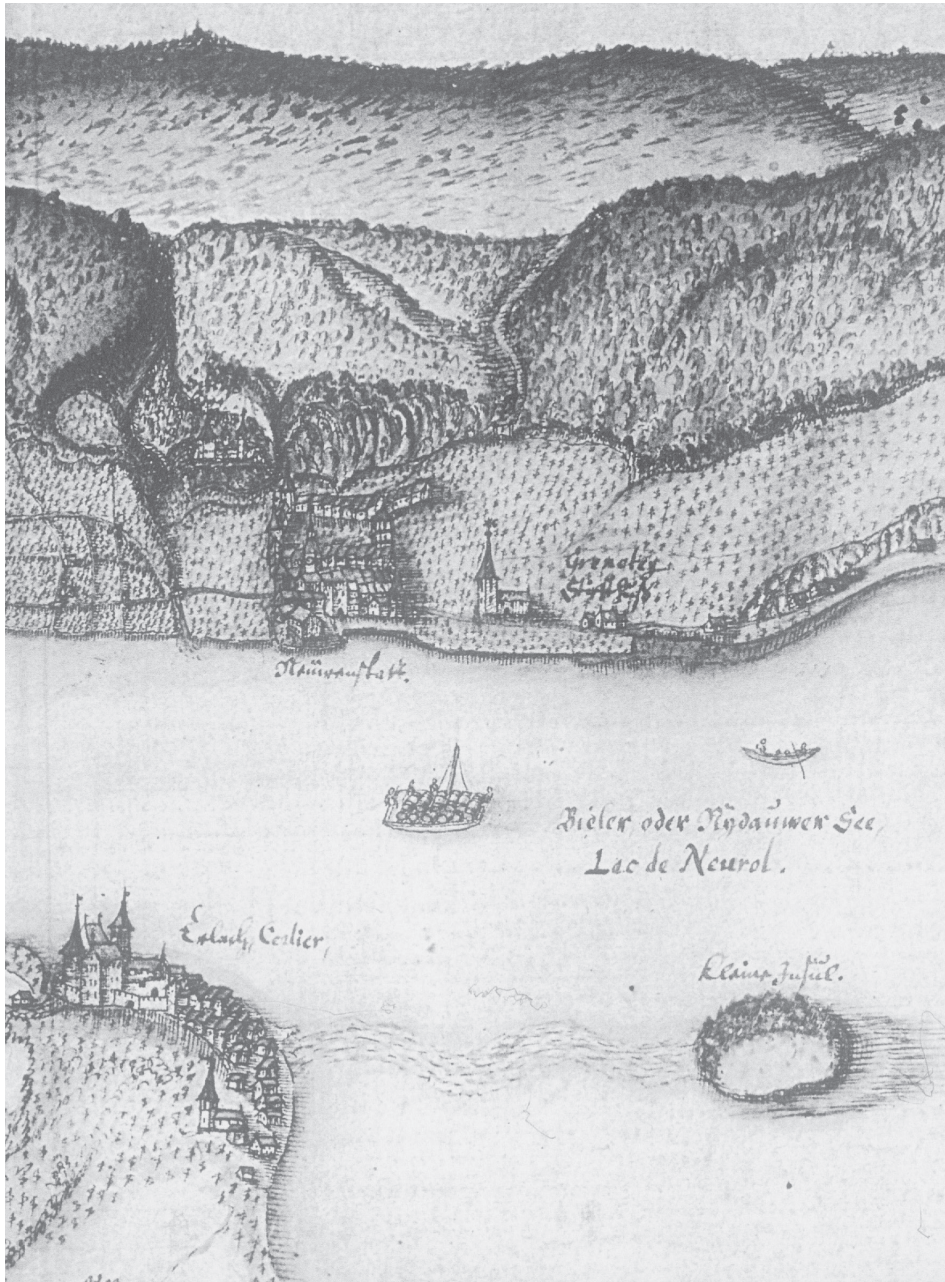 Neüwenstatt.
Bieler oder Nydauwer See,
Lac de Neurol.
Erlach, Cerlier,
Kleine Insul.